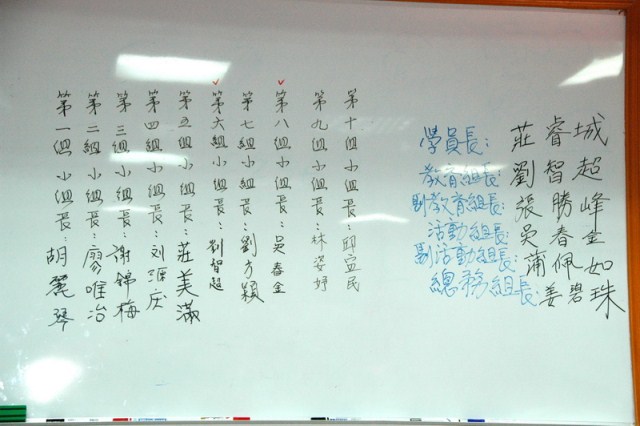 第一組小組長：胡麗琴
第二組小組長：廖唯冶
第三組小組長：謝錦梅
第四組小組長：刘源庆
第五組小組長：莊美滿
第六組小組長：劉智超
第七組小組長：劉方穎
第八組小組長：吳春金
第九組小組長：林姿妤
第十組小組長：邱宜民
學員長：莊睿城
教育組長：劉智超
副教育組長：張勝峰
活動組長：吳春金
副活動組長：蒲佩如
總務組長：姜碧珠